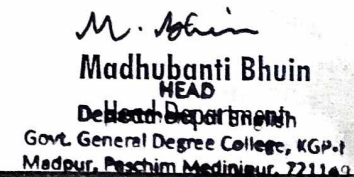 M. Bhuin
Madhubanti Bhuin
HEAD
Head Department
Govt. General Degree College, KGP-I
Madpur, Paschim Medinipur, 7211